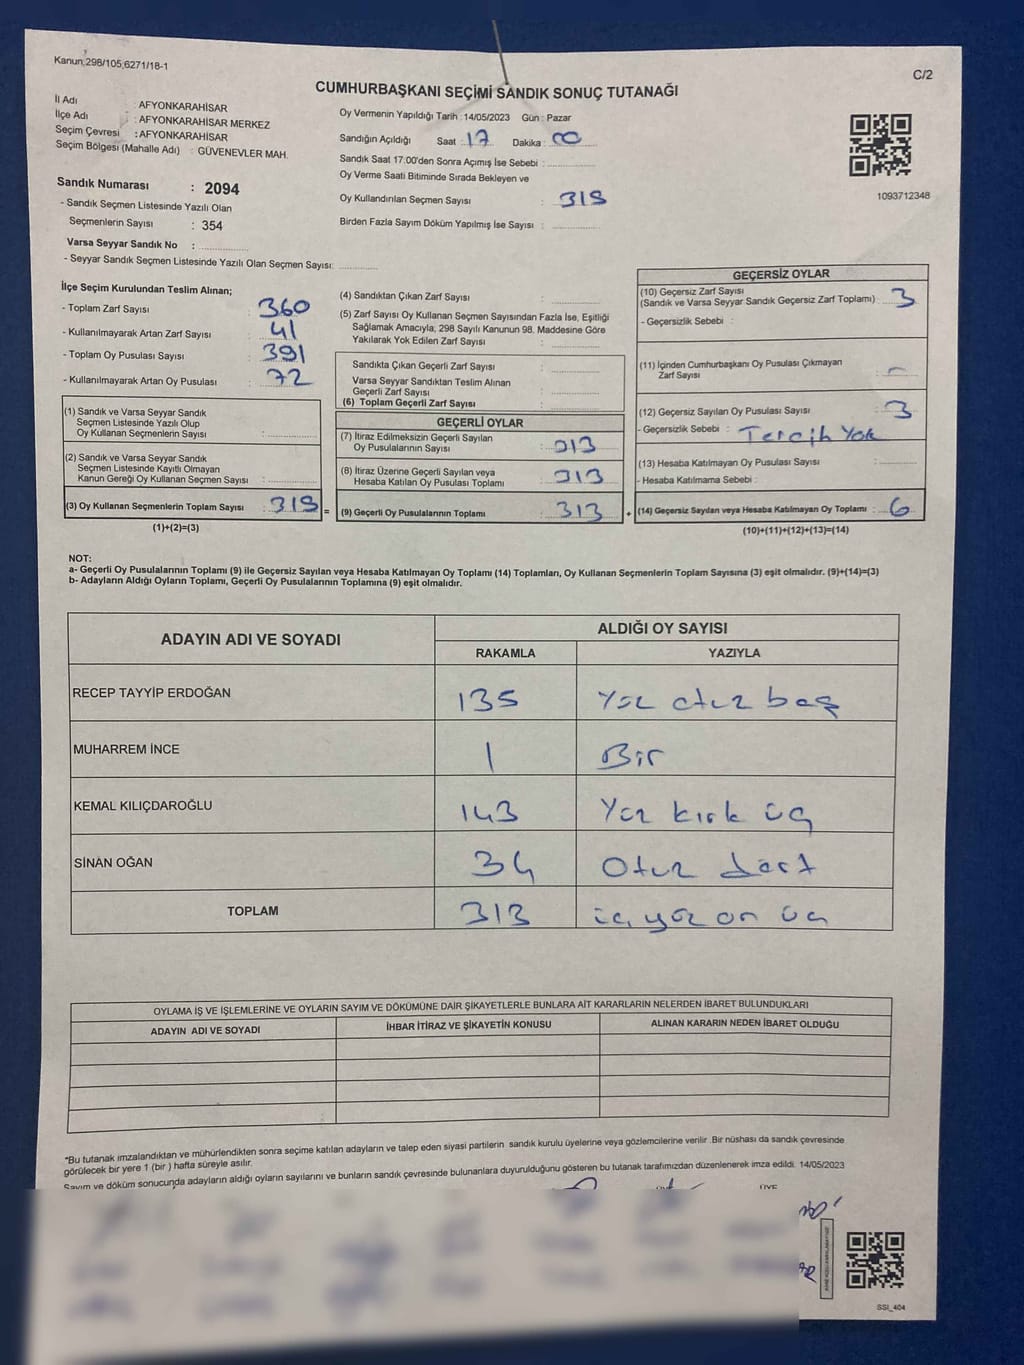 Kanun,298/105,6271/18-1
C/2
CUMHURBAŞKANI SEÇİMİ SANDIK SONUÇ TUTANAĞI
İl Adı : AFYONKARAHİSAR
İlçe Adı : AFYONKARAHİSAR MERKEZ
Seçim Çevresi : AFYONKARAHİSAR
Seçim Bölgesi (Mahalle Adı) : GÜVENEVLER MAH.
Oy Vermenin Yapıldığı Tarih :14/05/2023 Gün : Pazar
Sandığın Açıldığı Saat : 17 Dakika : 00
Sandık Saat 17:00'den Sonra Açımış İse Sebebi :
Oy Verme Saati Bitiminde Sırada Bekleyen ve
Oy Kullandırılan Seçmen Sayısı : 319
Birden Fazla Sayım Döküm Yapılmış İse Sayısı :
1093712348
Sandık Numarası : 2094
- Sandık Seçmen Listesinde Yazılı Olan
Seçmenlerin Sayısı : 354
Varsa Seyyar Sandık No :
- Seyyar Sandık Seçmen Listesinde Yazılı Olan Seçmen Sayısı:
İlçe Seçim Kurulundan Teslim Alınan;
- Toplam Zarf Sayısı : 360
- Kullanılmayarak Artan Zarf Sayısı : 41
- Toplam Oy Pusulası Sayısı : 391
- Kullanılmayarak Artan Oy Pusulası : 72
(1) Sandık ve Varsa Seyyar Sandık
Seçmen Listesinde Yazılı Olup
Oy Kullanan Seçmenlerin Sayısı :
(2) Sandık ve Varsa Seyyar Sandık
Seçmen Listesinde Kayıtlı Olmayan
Kanun Gereği Oy Kullanan Seçmen Sayısı :
(3) Oy Kullanan Seçmenlerin Toplam Sayısı : 319
(1)+(2)=(3)
=
(4) Sandıktan Çıkan Zarf Sayısı :
(5) Zarf Sayısı Oy Kullanan Seçmen Sayısından Fazla İse, Eşitliği
Sağlamak Amacıyla, 298 Sayılı Kanunun 98. Maddesine Göre
Yakılarak Yok Edilen Zarf Sayısı :
Sandıkta Çıkan Geçerli Zarf Sayısı :
Varsa Seyyar Sandıktan Teslim Alınan
Geçerli Zarf Sayısı :
(6) Toplam Geçerli Zarf Sayısı :
GEÇERLİ OYLAR
(7) İtiraz Edilmeksizin Geçerli Sayılan
Oy Pusulalarının Sayısı : 313
(8) İtiraz Üzerine Geçerli Sayılan veya
Hesaba Katılan Oy Pusulası Toplamı : 313
(9) Geçerli Oy Pusulalarının Toplamı : 313
+
GEÇERSİZ OYLAR
(10) Geçersiz Zarf Sayısı
(Sandık ve Varsa Seyyar Sandık Geçersiz Zarf Toplamı) : 3
- Geçersizlik Sebebi :
(11) İçinden Cumhurbaşkanı Oy Pusulası Çıkmayan
Zarf Sayısı : -
(12) Geçersiz Sayılan Oy Pusulası Sayısı : 3
- Geçersizlik Sebebi : Tercih Yok
(13) Hesaba Katılmayan Oy Pusulası Sayısı :
- Hesaba Katılmama Sebebi :
(14) Geçersiz Sayılan veya Hesaba Katılmayan Oy Toplamı : 6
(10)+(11)+(12)+(13)=(14)
NOT:
a- Geçerli Oy Pusulalarının Toplamı (9) ile Geçersiz Sayılan veya Hesaba Katılmayan Oy Toplamı (14) Toplamları, Oy Kullanan Seçmenlerin Toplam Sayısına (3) eşit olmalıdır. (9)+(14)=(3)
b- Adayların Aldığı Oyların Toplamı, Geçerli Oy Pusulalarının Toplamına (9) eşit olmalıdır.
ADAYIN ADI VE SOYADI
ALDIĞI OY SAYISI
RAKAMLA YAZIYLA
RECEP TAYYİP ERDOĞAN 135 Yüz otuz beş
MUHARREM İNCE 1 Bir
KEMAL KILIÇDAROĞLU 143 Yüz kırk üç
SİNAN OĞAN 34 Otuz dört
TOPLAM 313 üç yüz on üç
OYLAMA İŞ VE İŞLEMLERİNE VE OYLARIN SAYIM VE DÖKÜMÜNE DAİR ŞİKAYETLERLE BUNLARA AİT KARARLARIN NELERDEN İBARET BULUNDUKLARI
ADAYIN ADI VE SOYADI İHBAR İTİRAZ VE ŞİKAYETİN KONUSU ALINAN KARARIN NEDEN İBARET OLDUĞU
*Bu tutanak imzalandıktan ve mühürlendikten sonra seçime katılan adayların ve talep eden siyasi partilerin sandık kurulu üyelerine veya gözlemcilerine verilir .Bir nüshası da sandık çevresinde
görülecek bir yere 1 (bir ) hafta süreyle asılır.
Sayım ve döküm sonucunda adayların aldığı oyların sayılarını ve bunların sandık çevresinde bulunanlara duyurulduğunu gösteren bu tutanak tarafımızdan düzenlenerek imza edildi. 14/05/2023
ÜYE
SSI_404